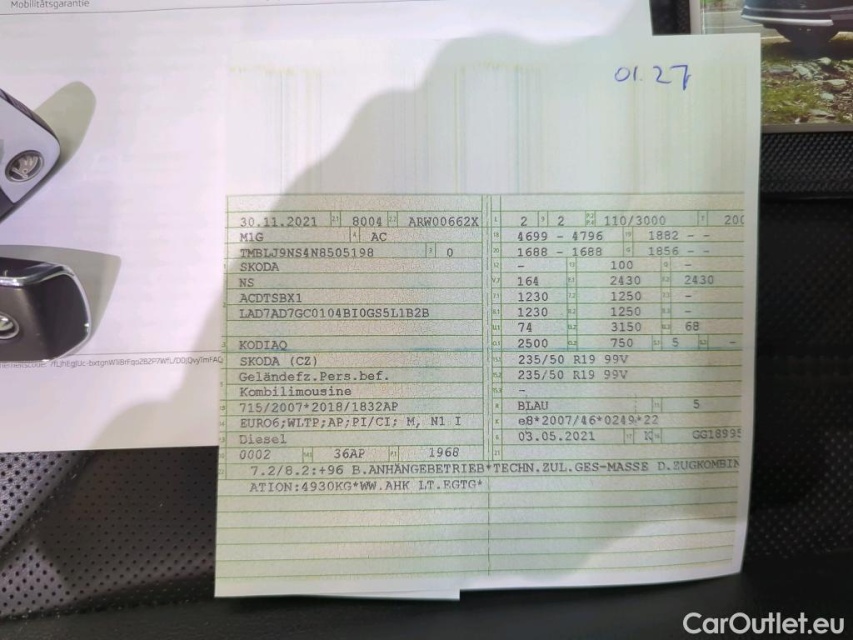 Mobilitätsgarantie
01.27
30.11.2021 8004 ARW00662X 2 2 110/3000 200
M1G AC 4699 - 4796 1882 - -
TMBLJ9NS4N8505198 0 1688 - 1688 1856 - -
SKODA - 100 -
NS 164 2430 2430
ACDTSBX1 1230 1250 -
LAD7AD7GC0104BI0GS5L1B2B 1230 1250 -
74 3150 68
KODIAQ 2500 750 5 -
SKODA (CZ) 235/50 R19 99V
Geländefz.Pers.bef. 235/50 R19 99V
Kombilimousine -
715/2007*2018/1832AP BLAU 5
EURO6;WLTP;AP;PI/CI; M, N1 I e8*2007/46*0249*22
Diesel 03.05.2021 K GG18995
0002 36AP 1968
7.2/8.2:+96 B.ANHÄNGEBETRIEB*TECHN.ZUL.GES-MASSE D.ZUGKOMBIN
ATION:4930KG*WW.AHK LT.EGTG*
CarOutlet.eu